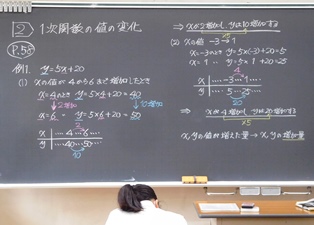 2 1次関数の値の変化
P.55
例1. y=5x+20
(1) xの値が4から6まで増加したとき
x=4のとき y=5×4+20=40
↓2増加 ↓10増加
x=6 〃 y=5×6+20=50
2
x … 4 … 6 …
y … 40 … 50 …
10
⇒ xが2増加し、yは10増加する
(2) xの値 -3→1
x=-3のとき y=5×(-3)+20=5
x=1 〃 y=5×1+20=25
4
x … -3 … 1 …
y … 5 … 25 …
20
⇒ xは4増加し、yは20増加する
x,yの値が増えた量→x,yの増加量